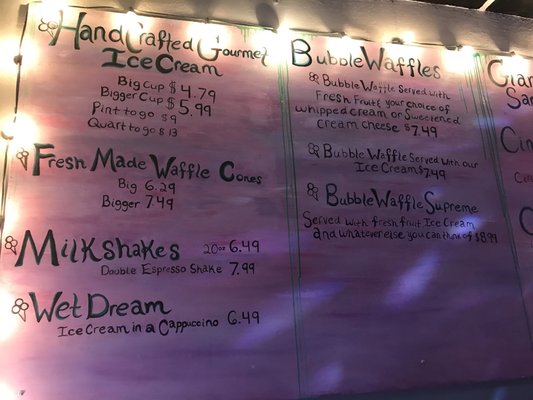 HandCrafted Gourmet
Ice Cream
Big Cup $4.79
Bigger Cup $5.99
Pint to go $9
Quart to go $13
Fresh Made Waffle Cones
Big 6.29
Bigger 7.49
Milkshakes 20oz 6.49
Double Espresso Shake 7.99
Wet Dream
Ice Cream in a Cappuccino 6.49
Bubble Waffles
Bubble Waffle Served with
Fresh Fruit & your choice of
whipped cream or Sweetened
Cream cheese $7.49
Bubble Waffle Served with our
Ice Cream $7.49
Bubble Waffle Supreme
Served with fresh fruit Ice Cream
and whatever else you can think of $8.99